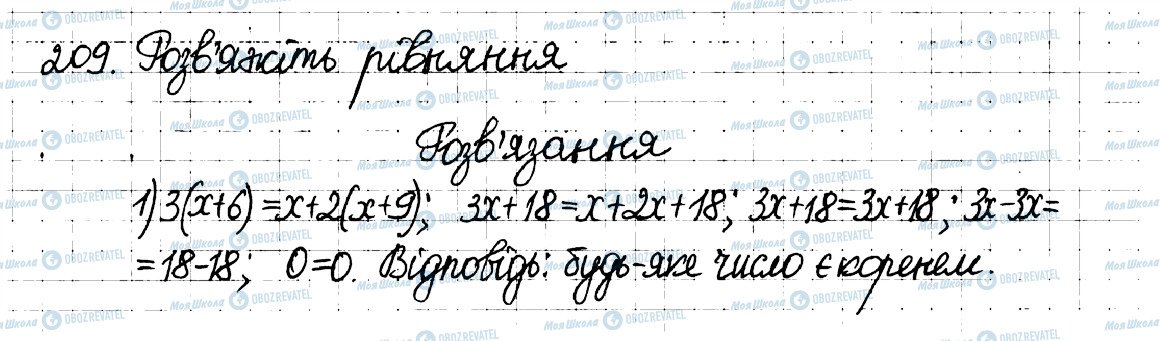 209. Розв'яжіть рівняння
Розв'язання
1) 3(x+6)=x+2(x+9); 3x+18=x+2x+18; 3x+18=3x+18; 3x-3x=
=18-18; 0=0. Відповідь: будь-яке число є коренем.